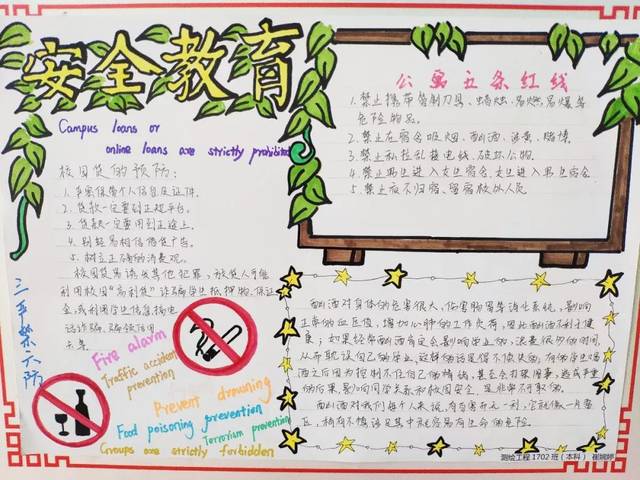 安全教育
Campus loans or
online loans are strictly prohibited
校园贷的预防:
1. 严密保管个人信息及证件.
2. 贷款一定要到正规平台.
3. 贷款一定要用到正途上.
4. 别轻易相信借贷广告。
5. 树立正确的消费观。
校园贷易诱发其他犯罪,放贷人可能
利用校园“高利贷”诈骗学生抵押物、保证
金,或利用学生信息搞电
话诈骗、骗领信用
卡等
三平禁六防
Fire alarm
Traffic accident
prevention
Prevent drowning
Food poisoning prevention
Terrorism prevention
Groups are strictly forbidden
公寓五条红线
1. 禁止携带管制刀具、蜡烛、易燃易爆等
危险物品。
2. 禁止在宿舍吸烟、酗酒、涉黄、赌博
3. 禁止私拉乱接电线、破坏公物.
4. 禁止男生进入女生宿舍、女生进入男生宿舍
5. 禁止夜不归宿、留宿校外人员
酗酒对身体的危害很大,伤害肠胃等消化系统,影响
正常的血压值,增加心肺的工作负荷,因此酗酒不利于健
康;如果经常酗酒肯定会影响学业的,浪费很多的时间,
从而耽误自己的学业,这样的话是得不偿失的,有的学生喝
酒之后因为控制不住自己的情绪,甚至会打架闹事,造成严重
的后果,影响同学关系和校园安全,是非常不可取的.
酗酒对我们每个人来说,有百害而无一利,它就像一片雷
区,稍有不慎涉足其中就容易有生命的危险
测绘工程1702班(本科) 崔婉婷